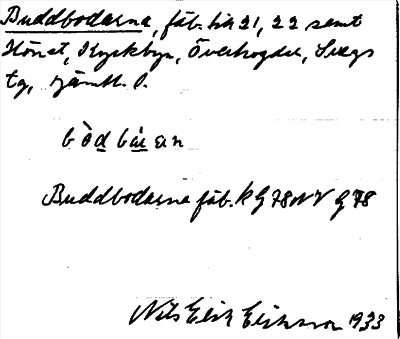 Buddbodarna, fäb. hik 21, 22 samt
Hönst, Kyrkbyn, Överhogdal, Svegs
tg, Jämtl. l.
Buddbodarna fäb. k G 78 NV G 78
Nils Erik Eriksson 1933